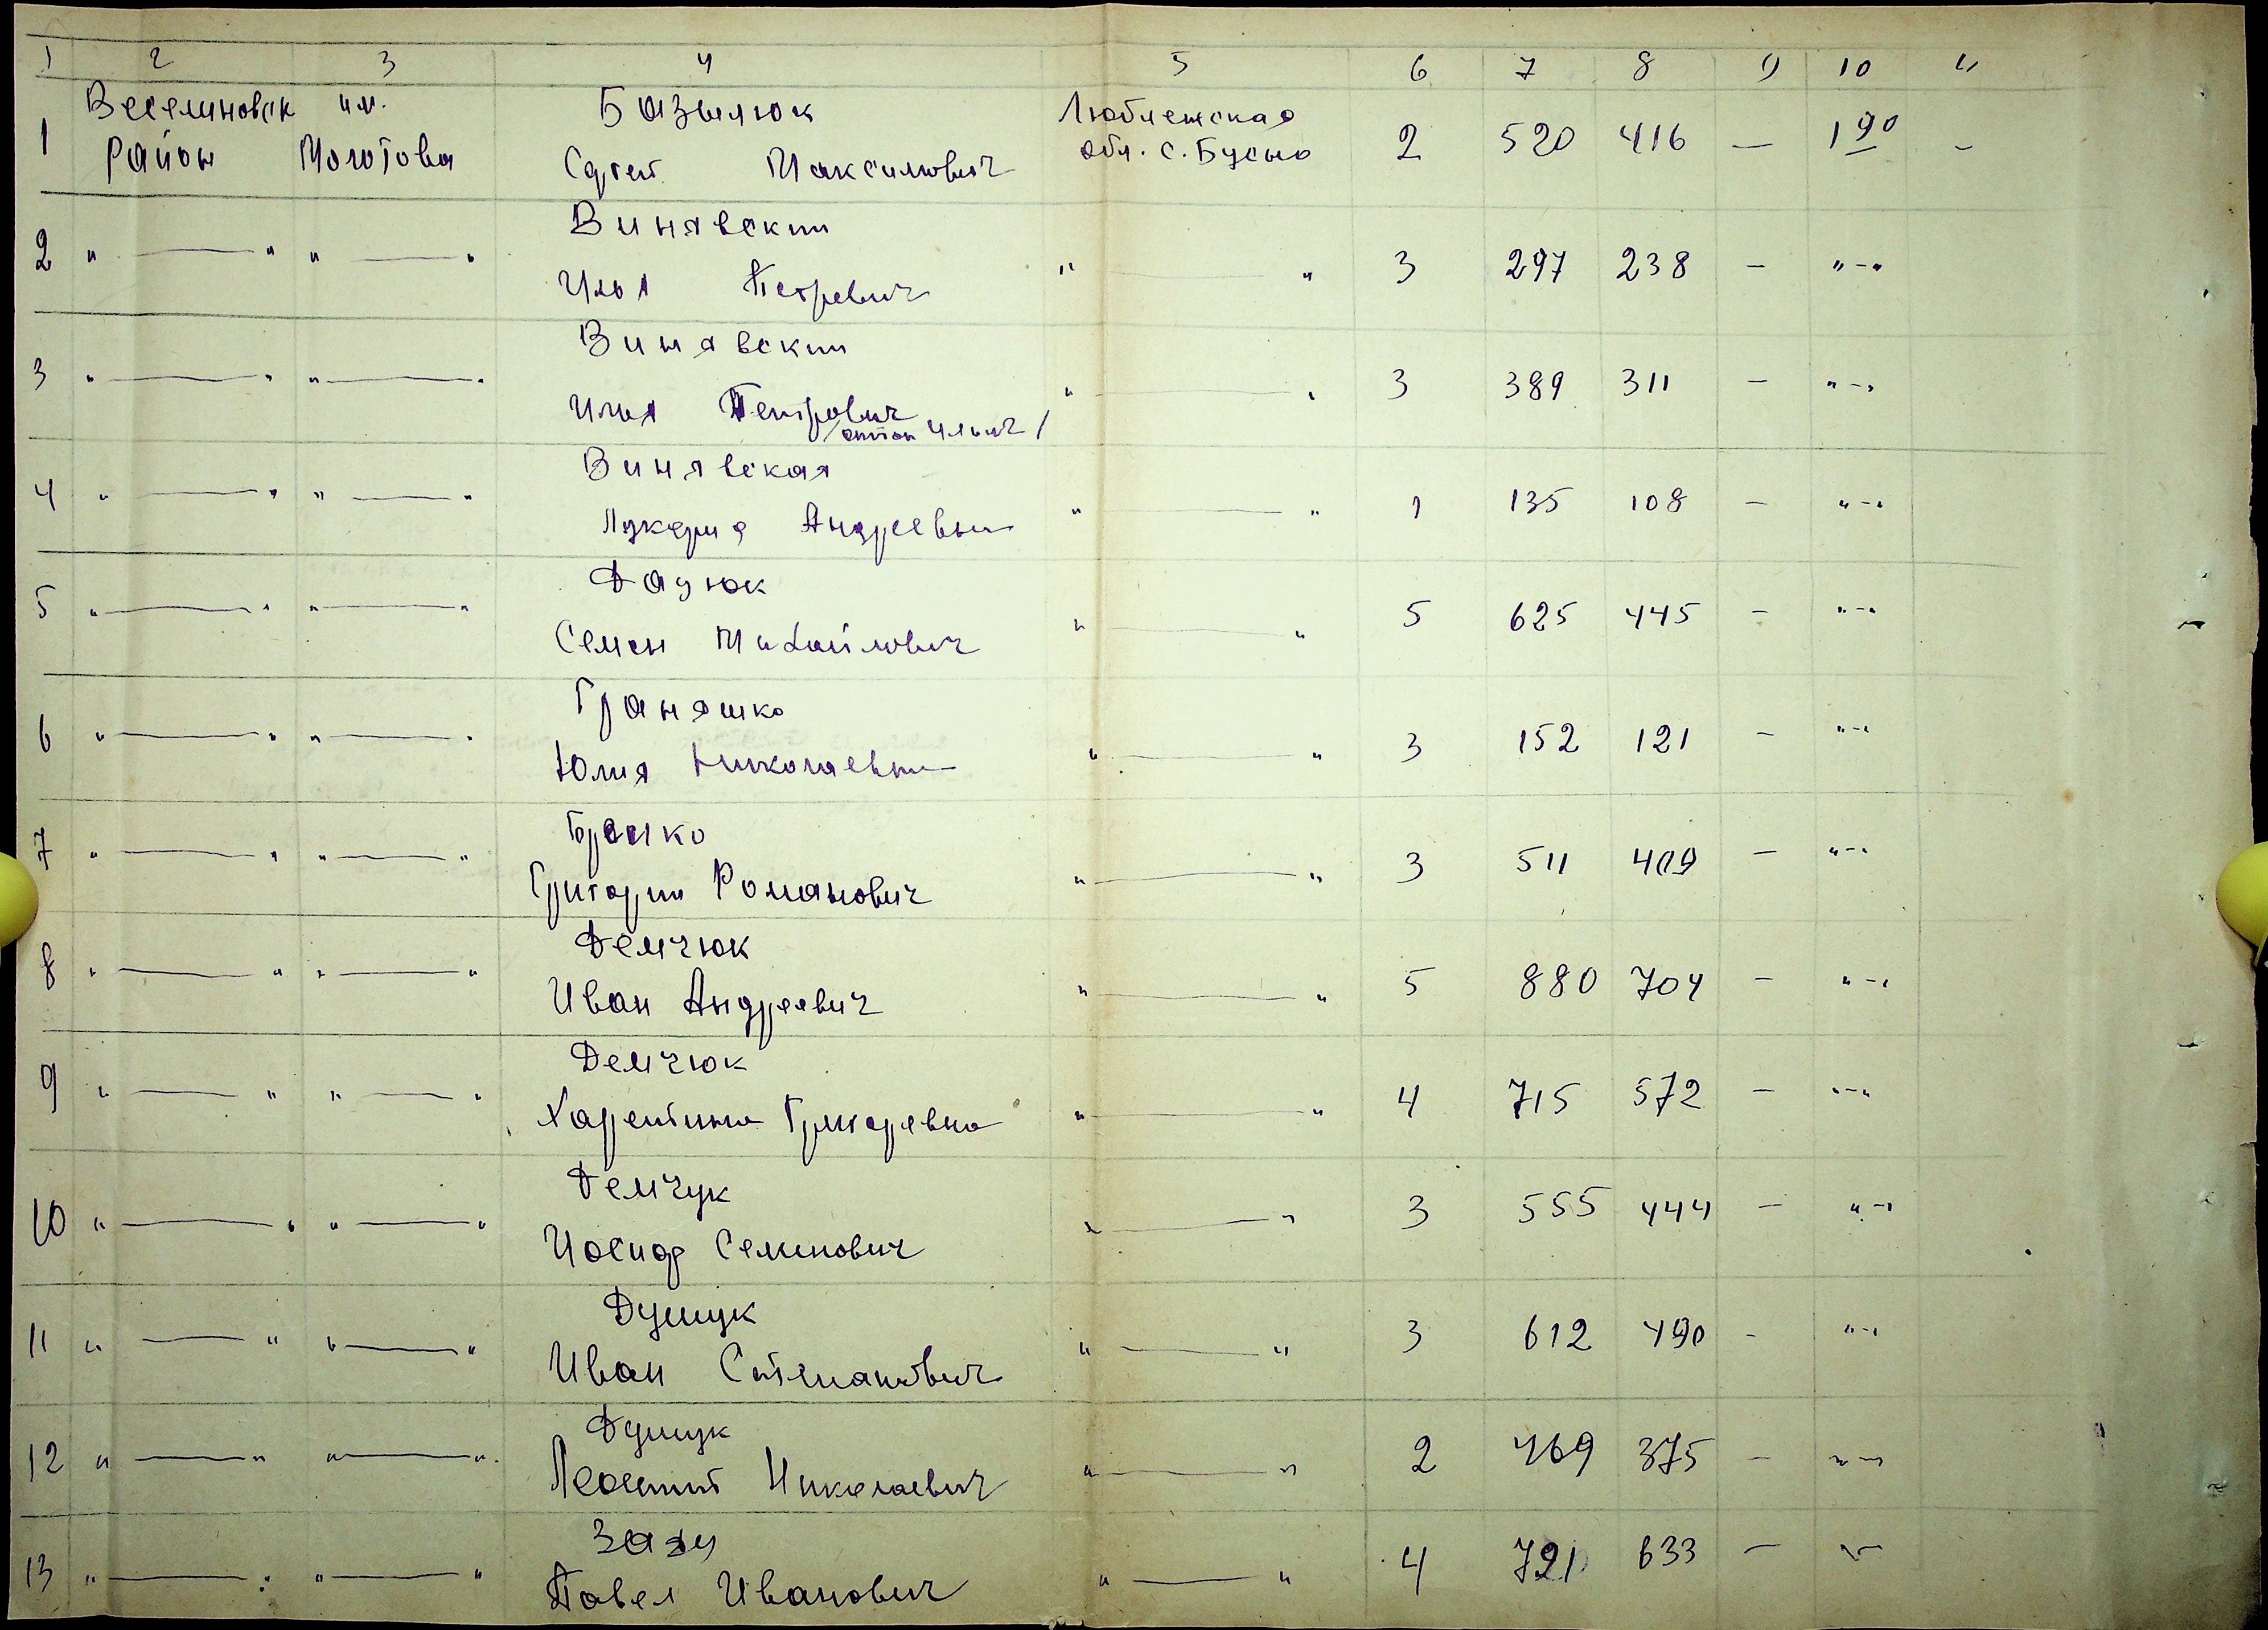 1 2 3 4 5 6 7 8 9 10 11
Веселиновск им. Базылюк Любленская
1 Район Молотова Сергей Максимович обл. с. Бусьно 2 520 416 — 1 90 –
Винявский
2 " — " " — " Илья Петрович " — " 3 297 238 – " – "
Винявский
3 " — " " — " Илья Петрович " — " 3 389 311 – " – "
/Антон Ильич/
Винявская
4 " — " " — " Лукерия Андреевна " — " 1 135 108 – " – "
Дацюк
5 " — " " — " Семен Михайлович " — " 5 625 445 – " – "
Граняшко
6 " — " " — " Юлия Николаевна " — " 3 152 121 – " – "
7 " — " " — " Григорий Романович " — " 3 511 409 – " – "
Демчюк
8 " — " " — " Иван Андреевич " — " 5 880 704 – " – "
Демчюк
9 " — " " — " Харентина Григоревна " — " 4 715 572 – " – "
Демчук
10 " — " " — " Иосиф Семенович " — " 3 555 444 – " – "
Дущук
11 " — " " — " Иван Степанович " — " 3 612 490 – " – "
Дущук
12 " — " " — " Леонтий Николаевич " — " 2 469 375 – " – "
13 " — " " — " Павел Иванович " — " 4 791 633 – " – "